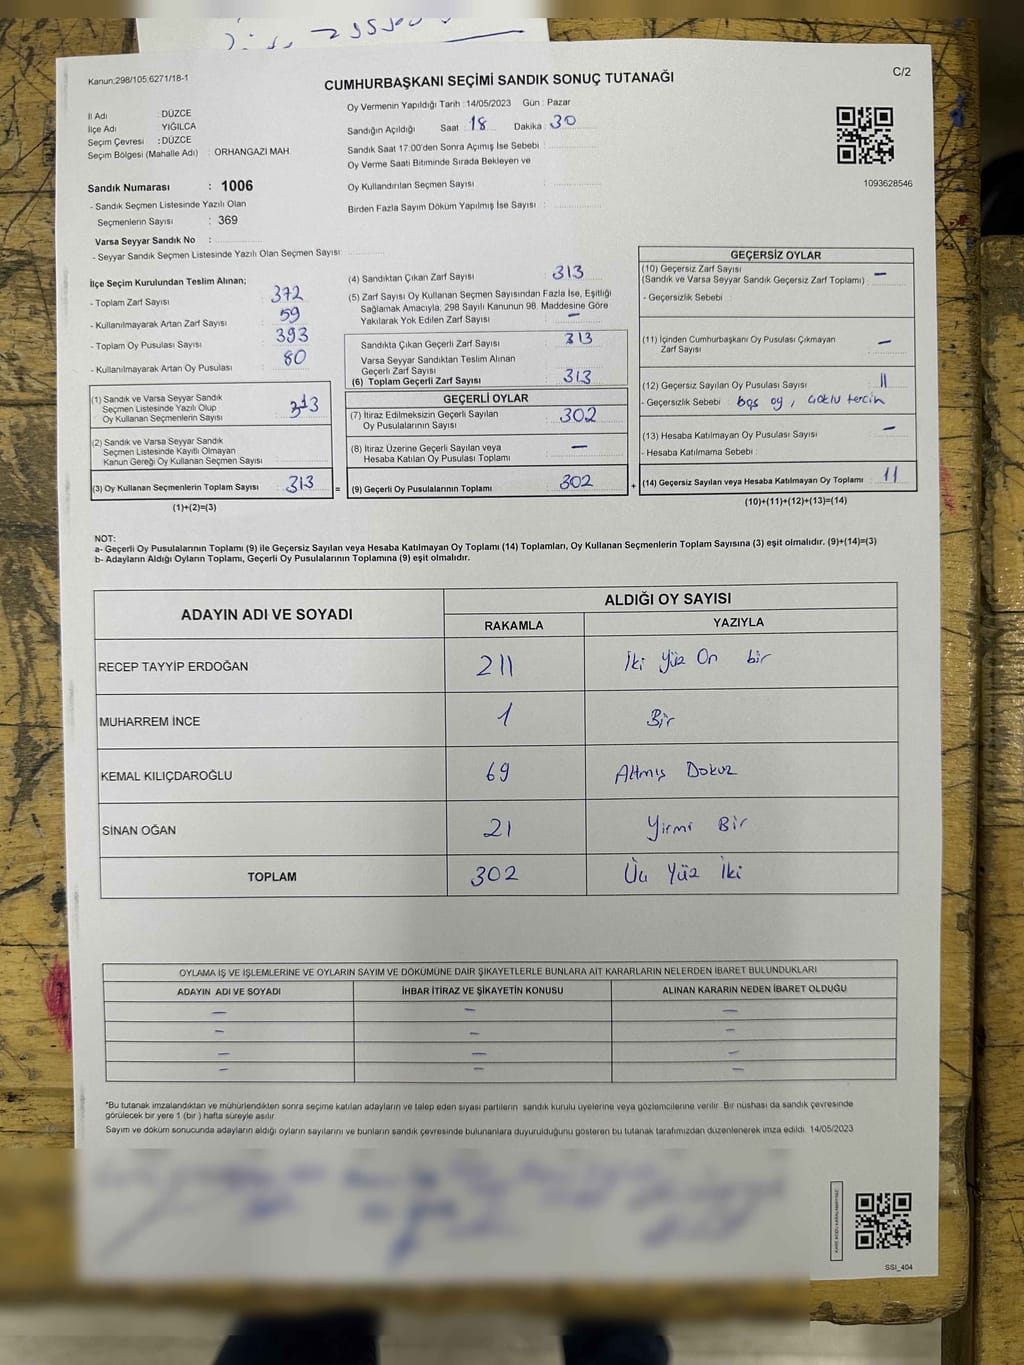 Kanun;298/105,6271/18-1
CUMHURBAŞKANI SEÇİMİ SANDIK SONUÇ TUTANAĞI
C/2
İl Adı : DÜZCE
İlçe Adı YIĞILCA
Seçim Çevresi : DÜZCE
Seçim Bölgesi (Mahalle Adı) : ORHANGAZİ MAH.
Oy Vermenin Yapıldığı Tarih : 14/05/2023 Gün : Pazar
Sandığın Açıldığı Saat : 18 Dakika : 30
Sandık Saat 17:00'den Sonra Açımış İse Sebebi :
Oy Verme Saati Bitiminde Sırada Bekleyen ve
Oy Kullandırılan Seçmen Sayısı :
Birden Fazla Sayım Döküm Yapılmış İse Sayısı :
1093628546
Sandık Numarası : 1006
- Sandık Seçmen Listesinde Yazılı Olan
Seçmenlerin Sayısı : 369
Varsa Seyyar Sandık No :
- Seyyar Sandık Seçmen Listesinde Yazılı Olan Seçmen Sayısı:
İlçe Seçim Kurulundan Teslim Alınan;
- Toplam Zarf Sayısı 372
- Kullanılmayarak Artan Zarf Sayısı 59
- Toplam Oy Pusulası Sayısı 393
- Kullanılmayarak Artan Oy Pusulası 80
(1) Sandık ve Varsa Seyyar Sandık
Seçmen Listesinde Yazılı Olup
Oy Kullanan Seçmenlerin Sayısı 313
(2) Sandık ve Varsa Seyyar Sandık
Seçmen Listesinde Kayıtlı Olmayan
Kanun Gereği Oy Kullanan Seçmen Sayısı
(3) Oy Kullanan Seçmenlerin Toplam Sayısı 313 =
(1)+(2)=(3)
(4) Sandıktan Çıkan Zarf Sayısı 313
(5) Zarf Sayısı Oy Kullanan Seçmen Sayısından Fazla İse, Eşitliği
Sağlamak Amacıyla, 298 Sayılı Kanunun 98. Maddesine Göre
Yakılarak Yok Edilen Zarf Sayısı —
Sandıkta Çıkan Geçerli Zarf Sayısı 313
Varsa Seyyar Sandıktan Teslim Alınan
Geçerli Zarf Sayısı
(6) Toplam Geçerli Zarf Sayısı 313
GEÇERLİ OYLAR
(7) İtiraz Edilmeksizin Geçerli Sayılan
Oy Pusulalarının Sayısı 302
(8) İtiraz Üzerine Geçerli Sayılan veya
Hesaba Katılan Oy Pusulası Toplamı —
(9) Geçerli Oy Pusulalarının Toplamı 302 +
GEÇERSİZ OYLAR
(10) Geçersiz Zarf Sayısı —
(Sandık ve Varsa Seyyar Sandık Geçersiz Zarf Toplamı)
- Geçersizlik Sebebi :
(11) İçinden Cumhurbaşkanı Oy Pusulası Çıkmayan
Zarf Sayısı —
(12) Geçersiz Sayılan Oy Pusulası Sayısı 11
- Geçersizlik Sebebi : boş oy, çoklu tercih
(13) Hesaba Katılmayan Oy Pusulası Sayısı —
- Hesaba Katılmama Sebebi :
(14) Geçersiz Sayılan veya Hesaba Katılmayan Oy Toplamı 11
(10)+(11)+(12)+(13)=(14)
NOT:
a- Geçerli Oy Pusulalarının Toplamı (9) ile Geçersiz Sayılan veya Hesaba Katılmayan Oy Toplamı (14) Toplamları, Oy Kullanan Seçmenlerin Toplam Sayısına (3) eşit olmalıdır. (9)+(14)=(3)
b- Adayların Aldığı Oyların Toplamı, Geçerli Oy Pusulalarının Toplamına (9) eşit olmalıdır.
ADAYIN ADI VE SOYADI
ALDIĞI OY SAYISI
RAKAMLA YAZIYLA
RECEP TAYYİP ERDOĞAN 211 İki Yüz On bir
MUHARREM İNCE 1 Bir
KEMAL KILIÇDAROĞLU 69 Altmış Dokuz
SİNAN OĞAN 21 Yirmi Bir
TOPLAM 302 Üç Yüz İki
OYLAMA İŞ VE İŞLEMLERİNE VE OYLARIN SAYIM VE DÖKÜMÜNE DAİR ŞİKAYETLERLE BUNLARA AİT KARARLARIN NELERDEN İBARET BULUNDUKLARI
ADAYIN ADI VE SOYADI İHBAR İTİRAZ VE ŞİKAYETİN KONUSU ALINAN KARARIN NEDEN İBARET OLDUĞU
— — —
— — —
— — —
— — —
*Bu tutanak imzalandıktan ve mühürlendikten sonra seçime katılan adayların ve talep eden siyasi partilerin sandık kurulu üyelerine veya gözlemcilerine verilir. Bir nüshası da sandık çevresinde
görülecek bir yere 1 (bir ) hafta süreyle asılır.
Sayım ve döküm sonucunda adayların aldığı oyların sayılarını ve bunların sandık çevresinde bulunanlara duyurulduğunu gösteren bu tutanak tarafımızdan düzenlenerek imza edildi. 14/05/2023
SSI_404